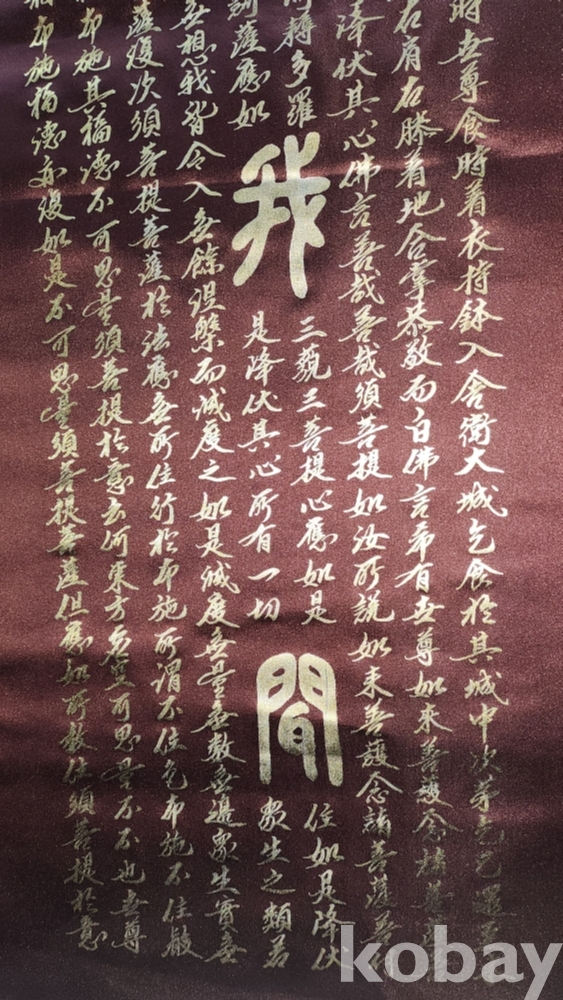 時世尊食時着衣持鉢入舍衛大城乞食於其城中次第乞已還
右肩右膝着地合掌恭敬而白佛言希有世尊如來善護念諸菩薩
降伏其心佛言善哉善哉須菩提如汝所說如來善護念諸菩薩善
耨多羅
三藐三菩提心應如是
住如是降伏
我
間
訶薩應如
是降伏其心所有一切
衆生之類若
無想我皆令入無餘涅槃而滅度之如是滅度無量無數無邊衆生實無
薩復次須菩提菩薩於法應無所住行於布施所謂不住色布施不住聲
布施其福德不可思量須菩提於意云何東方虛空可思量不不也世尊
相布施福德亦復如是不可思量須菩提菩薩但應如所教住須菩提於意
kobay